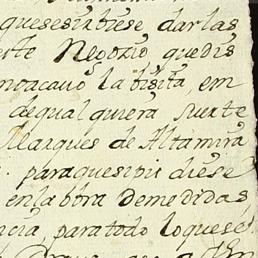 quesesirbiese dar las
este Negozio quedis
no acavo la bisita, em
de qual quiera suerte
Marques de Altamira
para quesi pudiese
en la otra de medidas
ncia, para todo lo quese